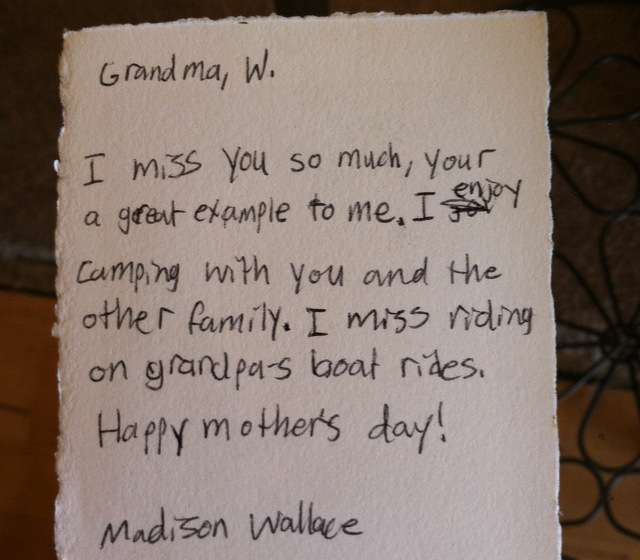 Grandma, W.
I miss you so much, your
a great example to me. I enjoy
camping with you and the
other family. I miss riding
on grandpa's boat rides.
Happy mother's day!
Madison Wallace